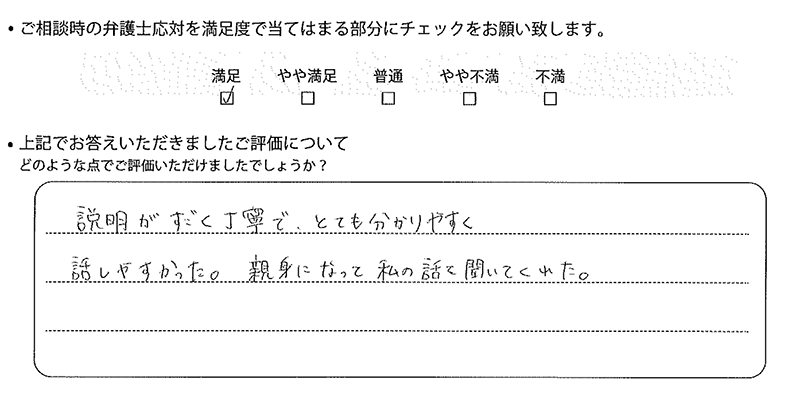 • ご相談時の弁護士応対を満足度で当てはまる部分にチェックをお願い致します。
満足 やや満足 普通 やや不満 不満
☑ ☐ ☐ ☐ ☐
• 上記でお答えいただきましたご評価について
どのような点でご評価いただけましたでしょうか？
説明がすごく丁寧で、とても分かりやすく
話しやすかった。 親身になって私の話を聞いてくれた。